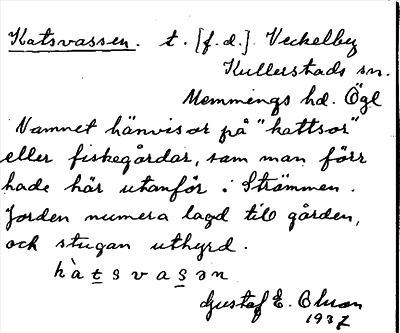 Katsvassen. t. [f.d.]. Veckelby
Kullerstads sn.
Memmings hd. Ögl
Namnet hänvisar på "kattsor"
eller fiskegårdar, som man förr
hade här utanför i Strömmen.
Jorden numera lagd till gården,
och stugan uthyrd.
kàtsvasən
Gustaf E. Olson
1937